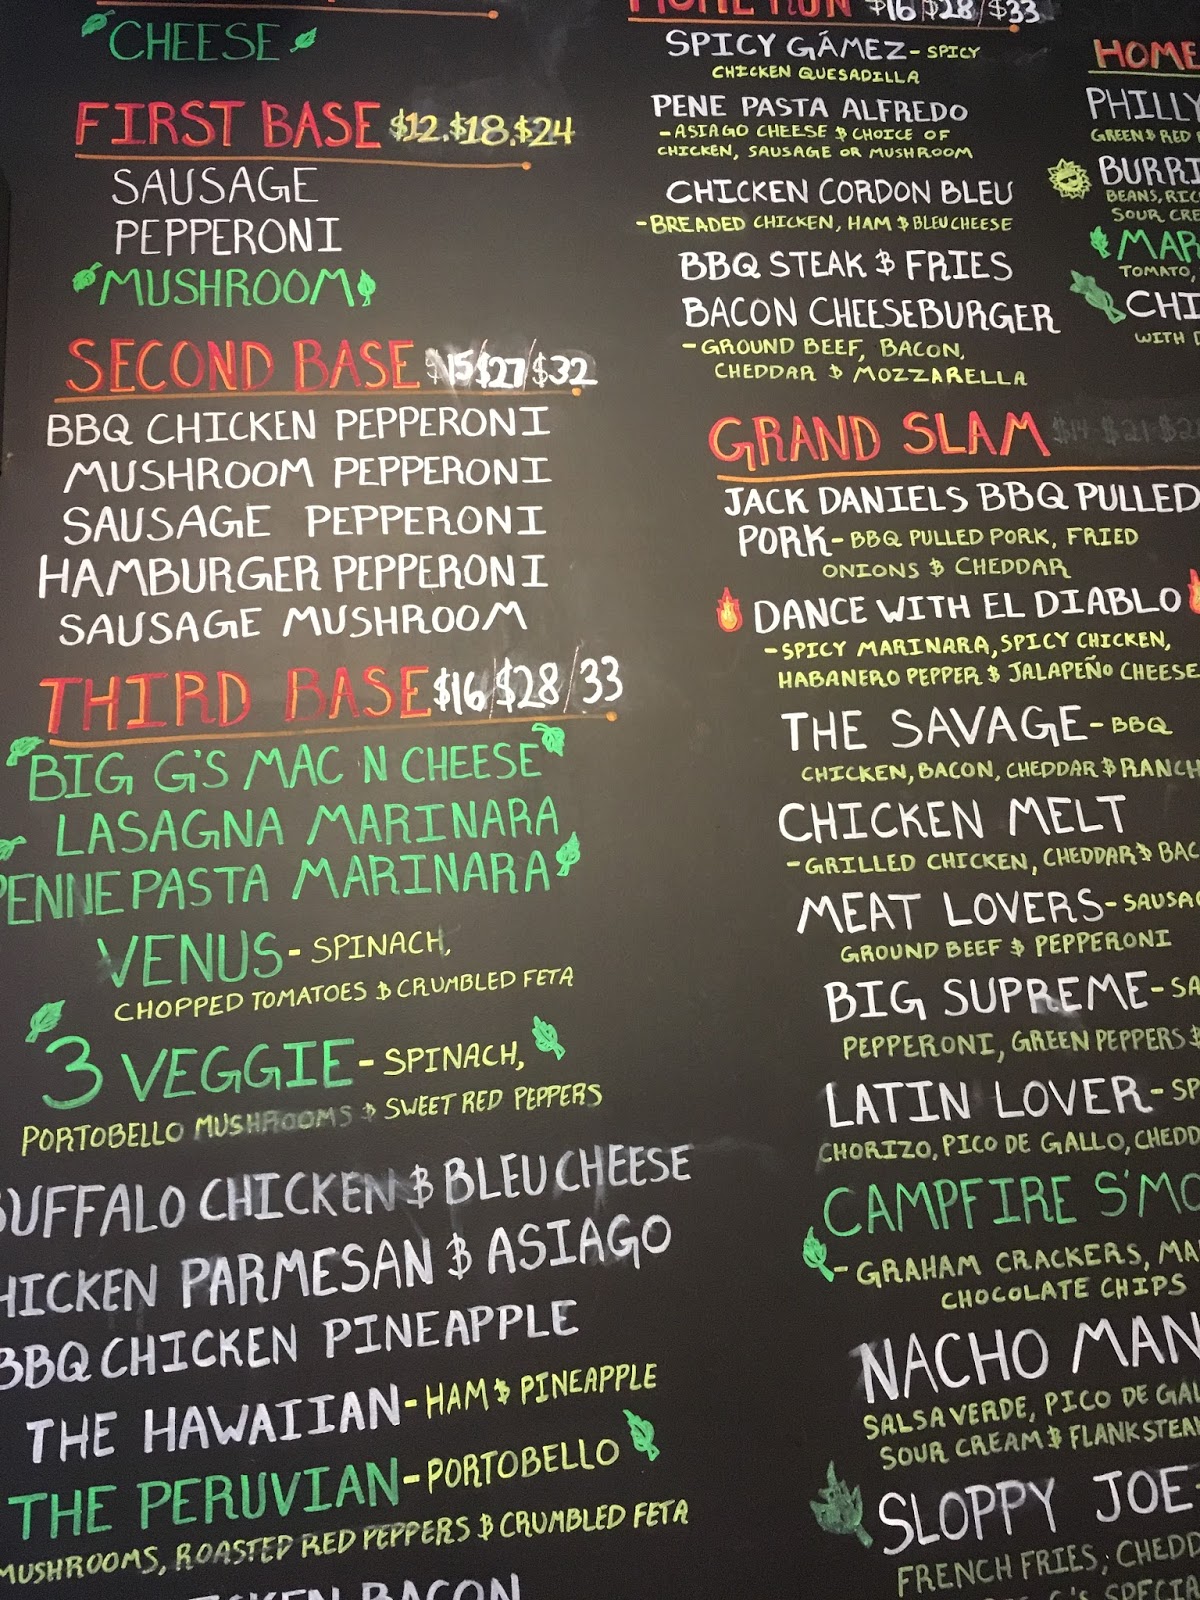 CHEESE
FIRST BASE $12.$18.$24
SAUSAGE
PEPPERONI
MUSHROOM
SECOND BASE $15/$27/$32
BBQ CHICKEN PEPPERONI
MUSHROOM PEPPERONI
SAUSAGE PEPPERONI
HAMBURGER PEPPERONI
SAUSAGE MUSHROOM
THIRD BASE $16/$28/33
BIG G'S MAC N CHEESE
LASAGNA MARINARA
PENNE PASTA MARINARA
VENUS - SPINACH,
CHOPPED TOMATOES & CRUMBLED FETA
3 VEGGIE - SPINACH,
PORTOBELLO MUSHROOMS & SWEET RED PEPPERS
BUFFALO CHICKEN & BLEU CHEESE
HICKEN PARMESAN & ASIAGO
BBQ CHICKEN PINEAPPLE
THE HAWAIIAN - HAM & PINEAPPLE
THE PERUVIAN - PORTOBELLO
MUSHROOMS, ROASTED RED PEPPERS & CRUMBLED FETA
BACON
HOME RUN $16/$28/$33
SPICY GÁMEZ - SPICY
CHICKEN QUESADILLA
PENE PASTA ALFREDO
- ASIAGO CHEESE & CHOICE OF
CHICKEN, SAUSAGE OR MUSHROOM
CHICKEN CORDON BLEU
- BREADED CHICKEN, HAM & BLEU CHEESE
BBQ STEAK & FRIES
BACON CHEESEBURGER
- GROUND BEEF, BACON,
CHEDDAR & MOZZARELLA
GRAND SLAM $14 $21
JACK DANIELS BBQ PULLED
PORK - BBQ PULLED PORK, FRIED
ONIONS & CHEDDAR
DANCE WITH EL DIABLO
- SPICY MARINARA, SPICY CHICKEN,
HABANERO PEPPER & JALAPEÑO CHEESE
THE SAVAGE - BBQ
CHICKEN, BACON, CHEDDAR & RANCH
CHICKEN MELT
- GRILLED CHICKEN, CHEDDAR & BAC
MEAT LOVERS - SAUSAG
GROUND BEEF & PEPPERONI
BIG SUPREME - SA
PEPPERONI, GREEN PEPPERS &
LATIN LOVER - SP
CHORIZO, PICO DE GALLO, CHEDD
CAMPFIRE S'MO
- GRAHAM CRACKERS, MA
CHOCOLATE CHIPS
NACHO MAN
SALSA VERDE, PICO DE GAL
SOUR CREAM & FLANK STEA
SLOPPY JOE
FRENCH FRIES, CHEDD
G'S SPECIA
HOME
PHILLY
GREEN & RED
BURRI
BEANS, RIC
SOUR CRE
MAR
TOMATO,
CHI
WITH